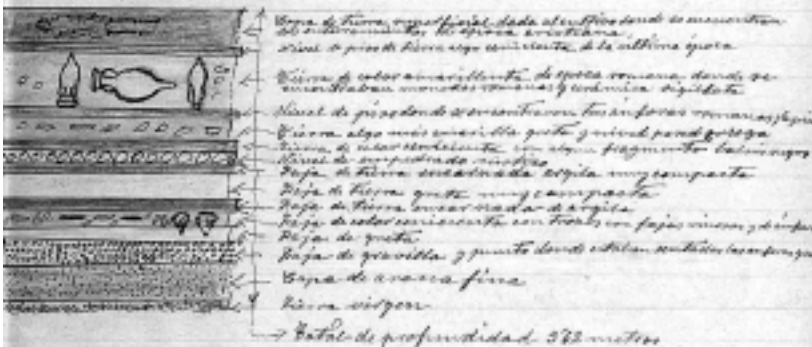 Capa de tierra superficial dada al cultivo donde se encuentran
de época cristiana.
Nivel de piso de tierra algo cenicienta de la última época
Tierra de color amarillenta de época romana, donde se
encontraban monedas romanas y cerámica sigillata
Nivel de piso donde se encontraron las ánforas romanas
Tierra algo más amarilla y nivel
Tierra de color cenicienta con algun fragmento
Nivel de empedrado rústico
Faja de tierra encarnada argila muy compacta
Faja de tierra greta muy compacta
Faja de tierra encarnada de argila
Faja de color cenicienta con trozos con fajas
Faja de greta
Faja de gravilla y punto donde estaban sentadas las
Capa de arena fina
Tierra virgen
Total de profundidad metros